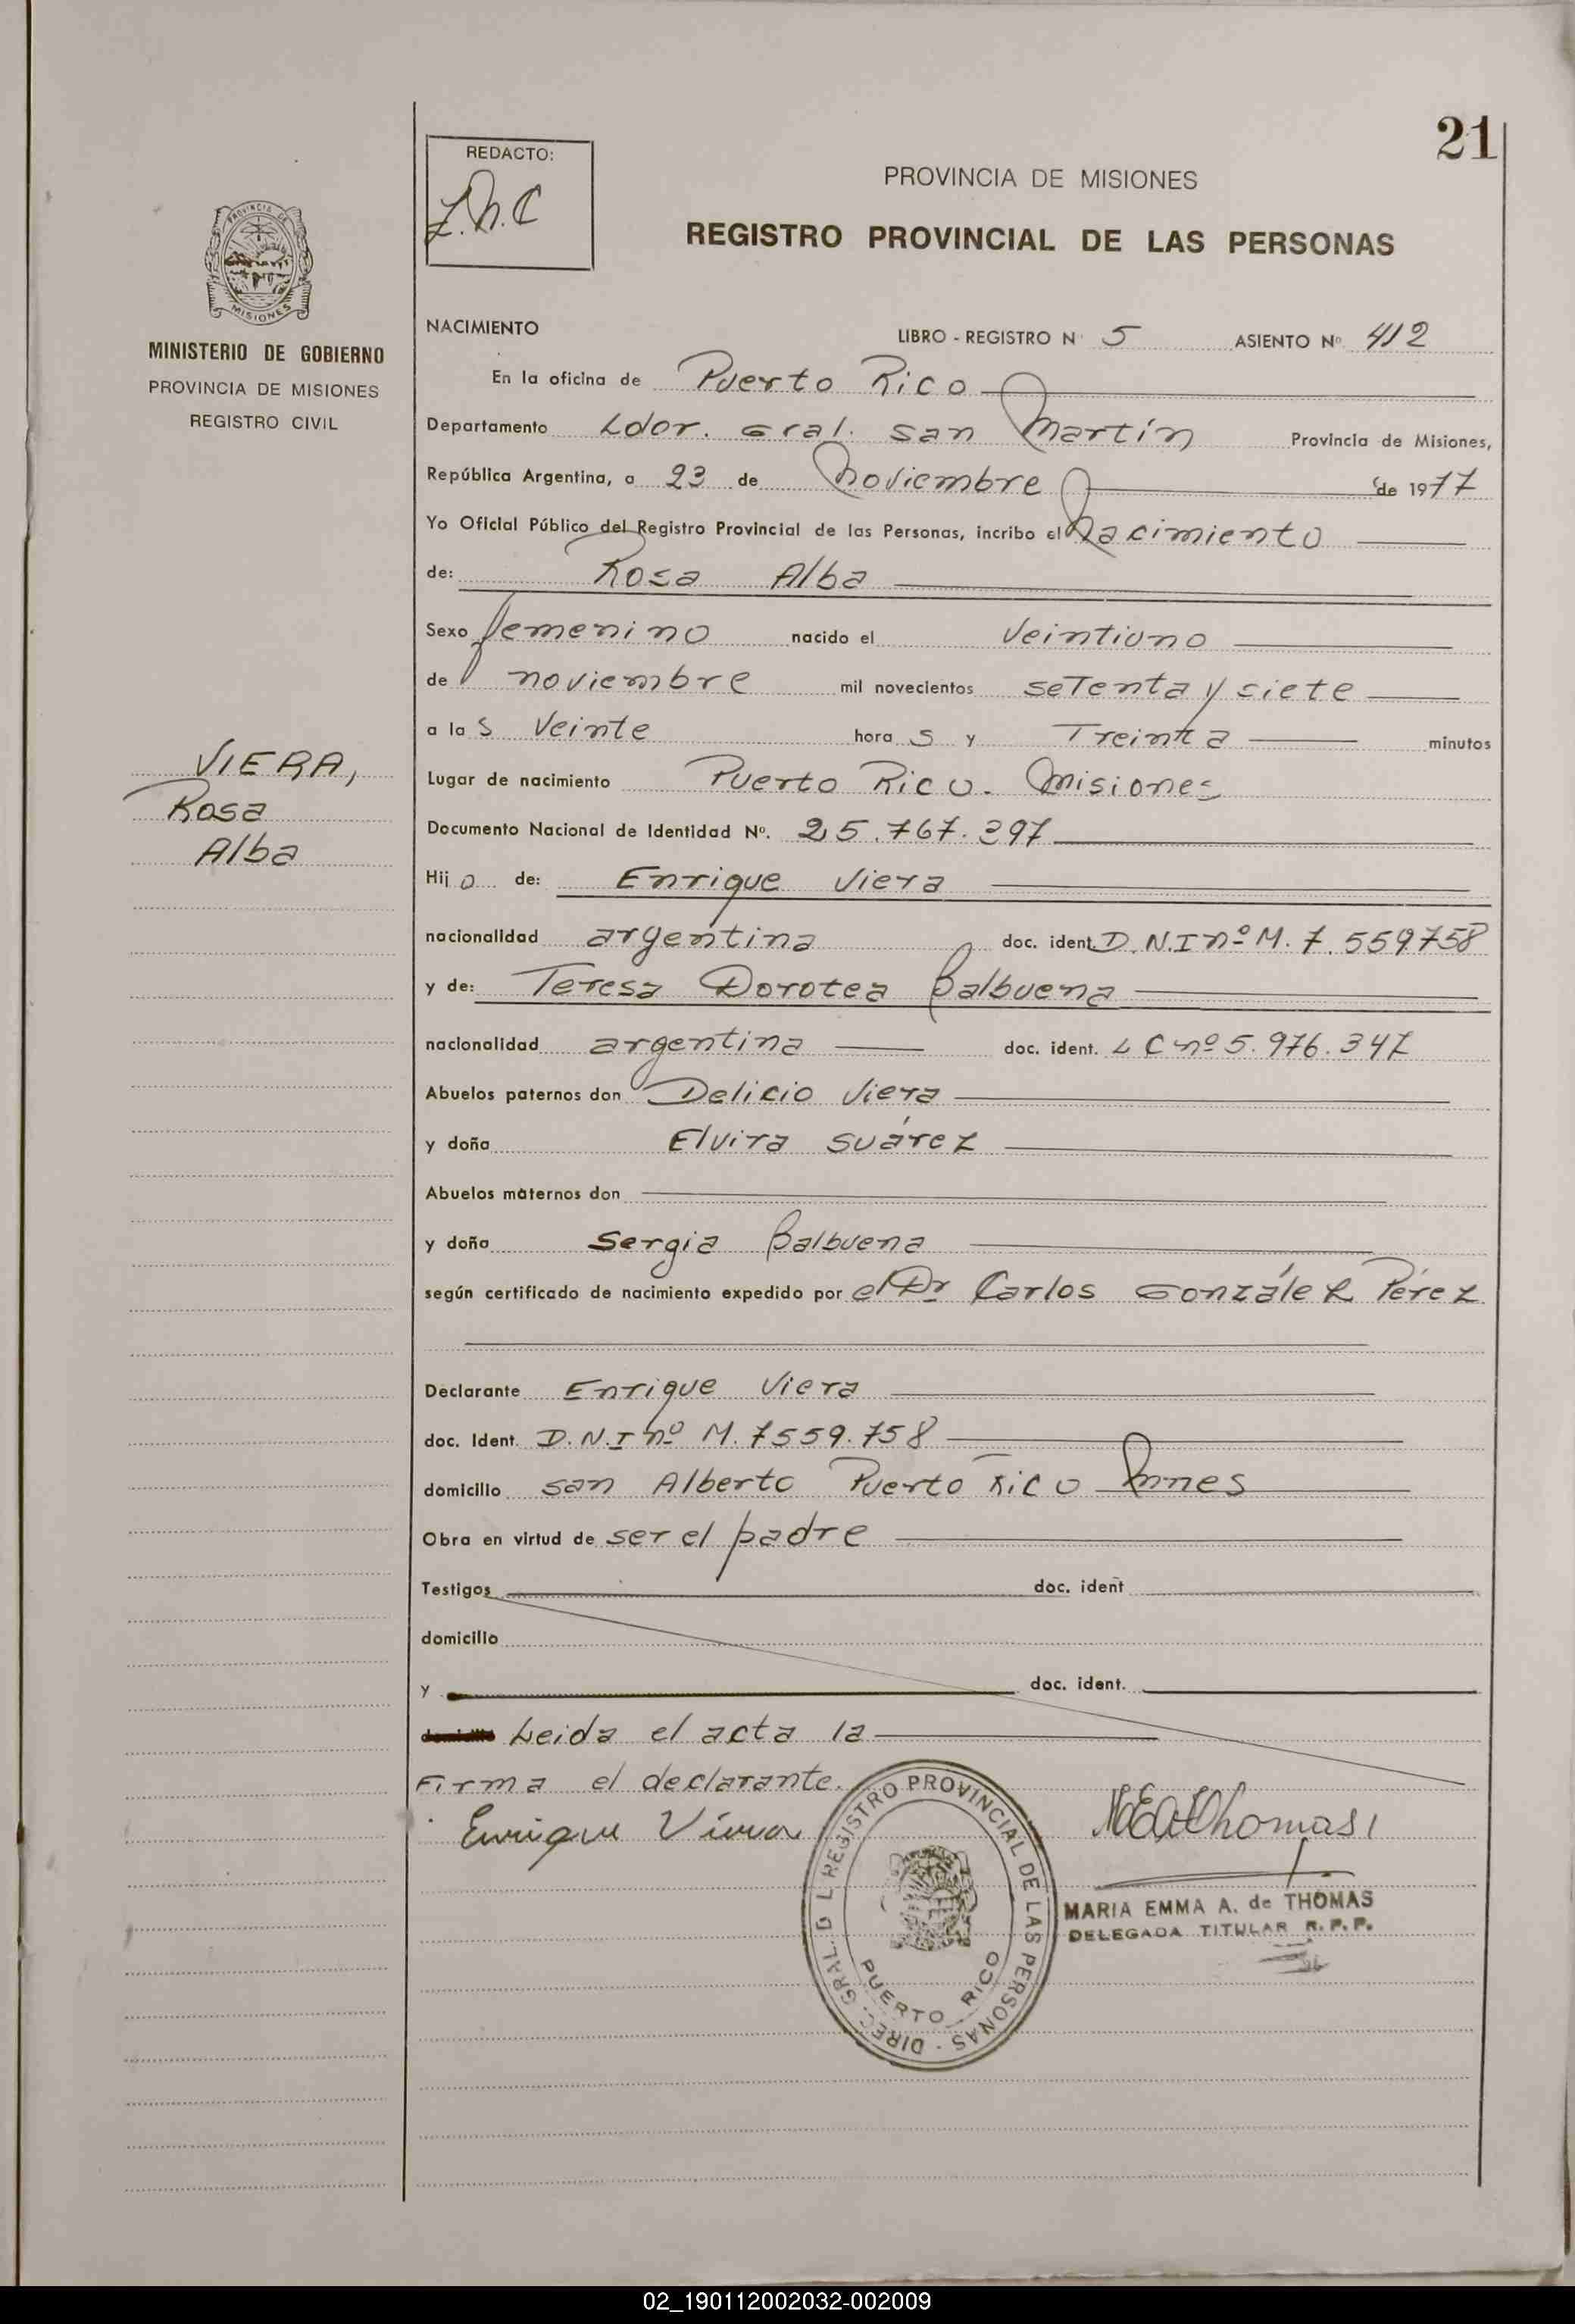 21
REDACTO:
PROVINCIA DE MISIONES
REGISTRO PROVINCIAL DE LAS PERSONAS
PROVINCIA DE
MISIONES
MINISTERIO DE GOBIERNO
PROVINCIA DE MISIONES
REGISTRO CIVIL
VIERA,
Rosa
Alba
NACIMIENTO LIBRO - REGISTRO Nº 5 ASIENTO Nº 412
En la oficina de Puerto Rico
Departamento Ldor. Gral. San Martín Provincia de Misiones,
República Argentina, a 23 de Noviembre de 1977
Yo Oficial Público del Registro Provincial de las Personas, incribo el Nacimiento
de: Rosa Alba
Sexo femenino nacido el veintiuno
de noviembre mil novecientos setenta y siete
a las veinte horas y Treinta minutos
Lugar de nacimiento Puerto Rico. Misiones
Documento Nacional de Identidad Nº. 25.767.397
Hijo de: Enrique Viera
nacionalidad argentina doc. ident. D.N.I nº M. 7.559.758
y de: Teresa Dorotea Balbuena
nacionalidad argentina doc. ident. L C nº 5.976.347
Abuelos paternos don Delicio Viera
y doña Elvira Suárez
Abuelos maternos don
y doña Sergia Balbuena
según certificado de nacimiento expedido por el Dr Carlos González Pérez
Declarante Enrique Viera
doc. Ident. D.N.I nº M. 7559.758
domicilio San Alberto Puerto Rico Mnes
Obra en virtud de ser el padre
Testigos doc. ident
domicilio
y doc. ident.
Leida el acta la
Firma el declarante.
Enrique Viera
MARIA EMMA A. de THOMAS
DELEGADA TITULAR R.P.P.
DIREC. GRAL. D L REGISTRO PROVINCIAL DE LAS PERSONAS -
PUERTO RICO
02_190112002032-002009